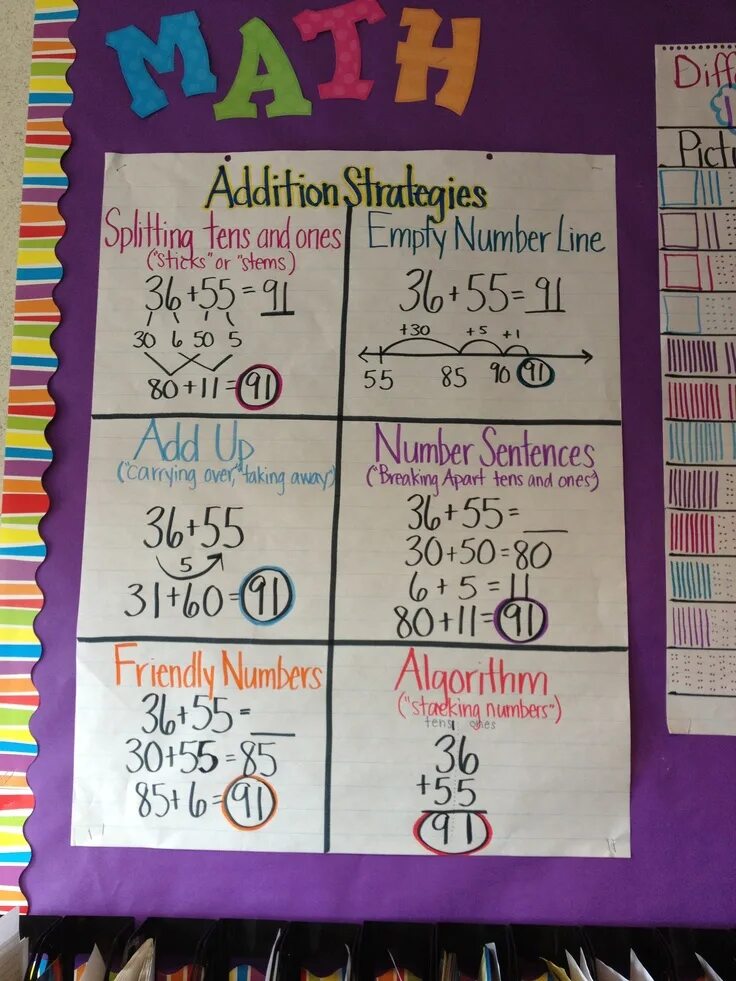 MATH
Addition Strategies
Splitting tens and ones
("sticks" or "stems")
36+55=91
30 6 50 5
80+11=91
Empty Number Line
36+55=91
+30 +5 +1
55 85 90 91
Add Up
("carrying over," "taking away")
36+55
5
31+60=91
Number Sentences
("Breaking Apart tens and ones")
36+55=__
30+50=80
6+5=11
80+11=91
Friendly Numbers
36+55=__
30+55=85
85+6=91
Algorithm
("stacking numbers")
tens ones
1
36
+55
91
Diff
Pict